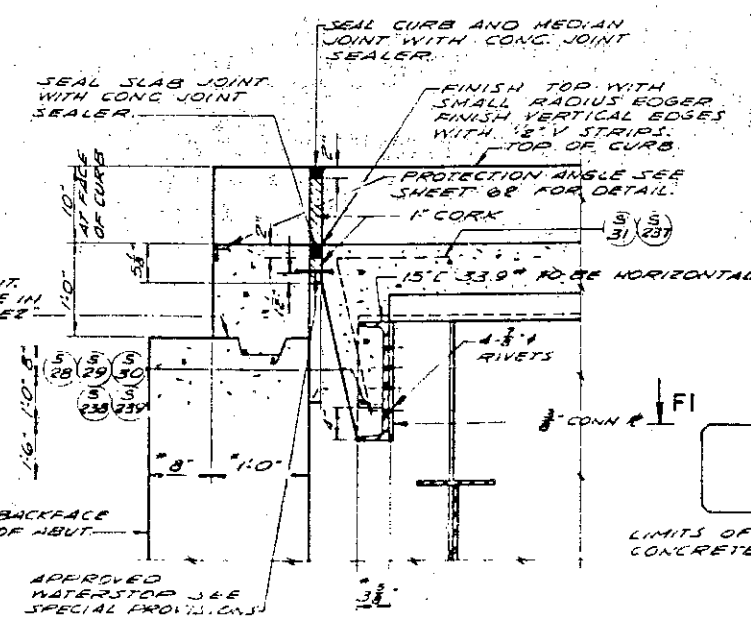 SEAL CURB AND MEDIAN
JOINT WITH CONC. JOINT
SEALER.
SEAL SLAB JOINT
WITH CONC JOINT
SEALER.
FINISH TOP WITH
SMALL RADIUS EDGER
FINISH VERTICAL EDGES
WITH V STRIPS.
TOP OF CURB
2"
PROTECTION ANGLE SEE
SHEET 68 FOR DETAIL.
10"
AT FACE
OF CURB
2"
1" CORK
S 31
S 237
15"C 33.9# TO BE HORIZONTAL
1'-0"
IN
S 28
S 29
S 30
S 238
S 239
RIVETS
4"
CONN
F1
8"
1'-0"
1'-6"
*8"
*1'-0"
BACKFACE
OF ABUT
LIMITS OF
CONCRETE
APPROVED
WATERSTOP SEE
SPECIAL PROVISIONS